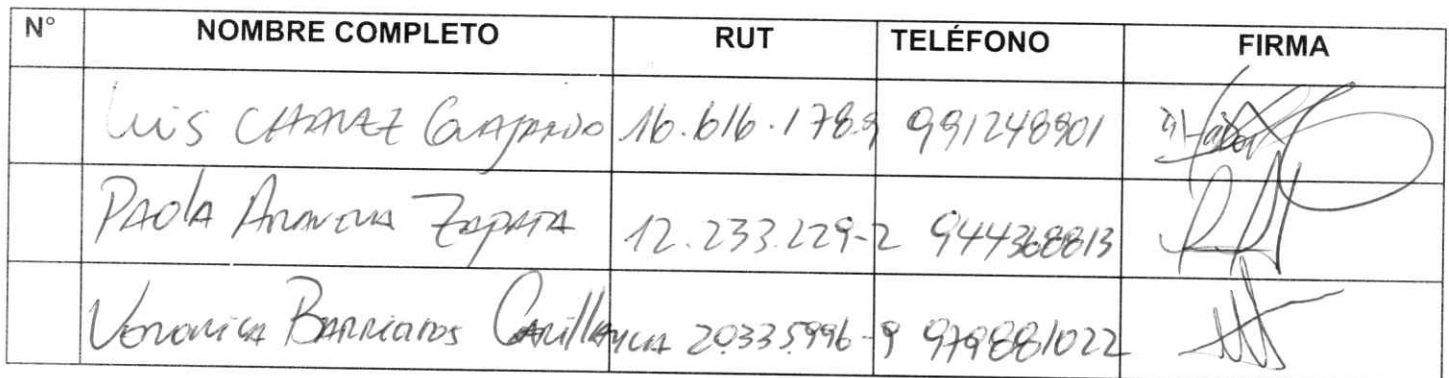 N° NOMBRE COMPLETO RUT TELÉFONO FIRMA
Luis CHAVEZ GAJARDO 16.616.178.9 991248901
PAOLA ARAVENA ZAPATA 12.233.229-2 944368813
Veronica Barrientos 20335996-9 979881022